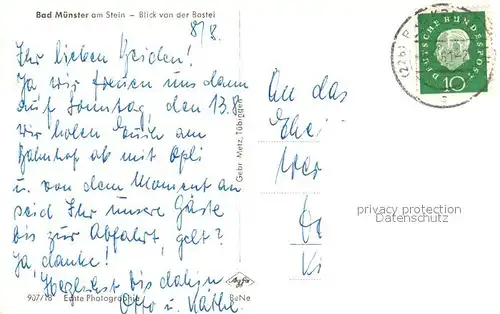 Bad Münster am Stein – Blick von der Bastei
8/8.
Ihr lieben beiden!
Ja wir freuen uns dann
auf Sonntag, den 13.8.
Wir holen Euch am
Bahnhof ab mit Opli
u. von dem Moment an
seid Ihr unsere Gäste
bis zur Abfahrt, gelt?
Ja, danke!
Herzlichst bis dahin
Otto u. Käthe.
907/18 Echte Photographie
BeNe
Gebr. Metz, Tübingen
Agfa
An das
Ehe
DEUTSCHE BUNDESPOST
10
(22b)
privacy protection
Datenschutz